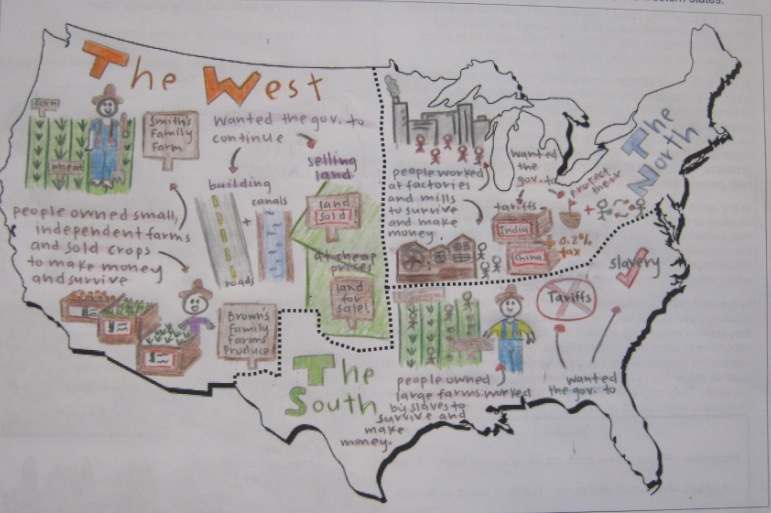 western states.
The West
corn
wheat
Smith's
Family
Farm
Wanted the gov. to
continue
building
+
canals
roads
selling
land
land
sold!
at cheap
prices
land
for
sale!
people owned small,
independent farms
and sold crops
to make money
and survive
Browns
Family
Farms
Produce
The
North
people worked
at factories
and mills
to survive
and make
money
wanted
the
gov. to
protect
their
tariffs
India
China
+ 0.2%
tax
+
The
South
people owned
large farms worked
by slaves to
survive and
make
money.
Tariffs
slavery
wanted
the gov. to